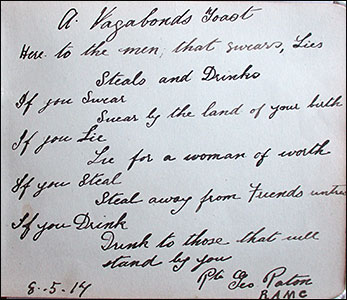 A. Vagabonds Toast
Here to the men, that swears, Lies
Steals and Drinks
If you Swear
Swear by the land of your birth
If you Lie
Lie for a woman of worth
If you Steal
Steal away from Friends untrue
If you Drink
Drink to those that will
stand by you
Pte Geo Paton
8-5-17
R.A.M.C